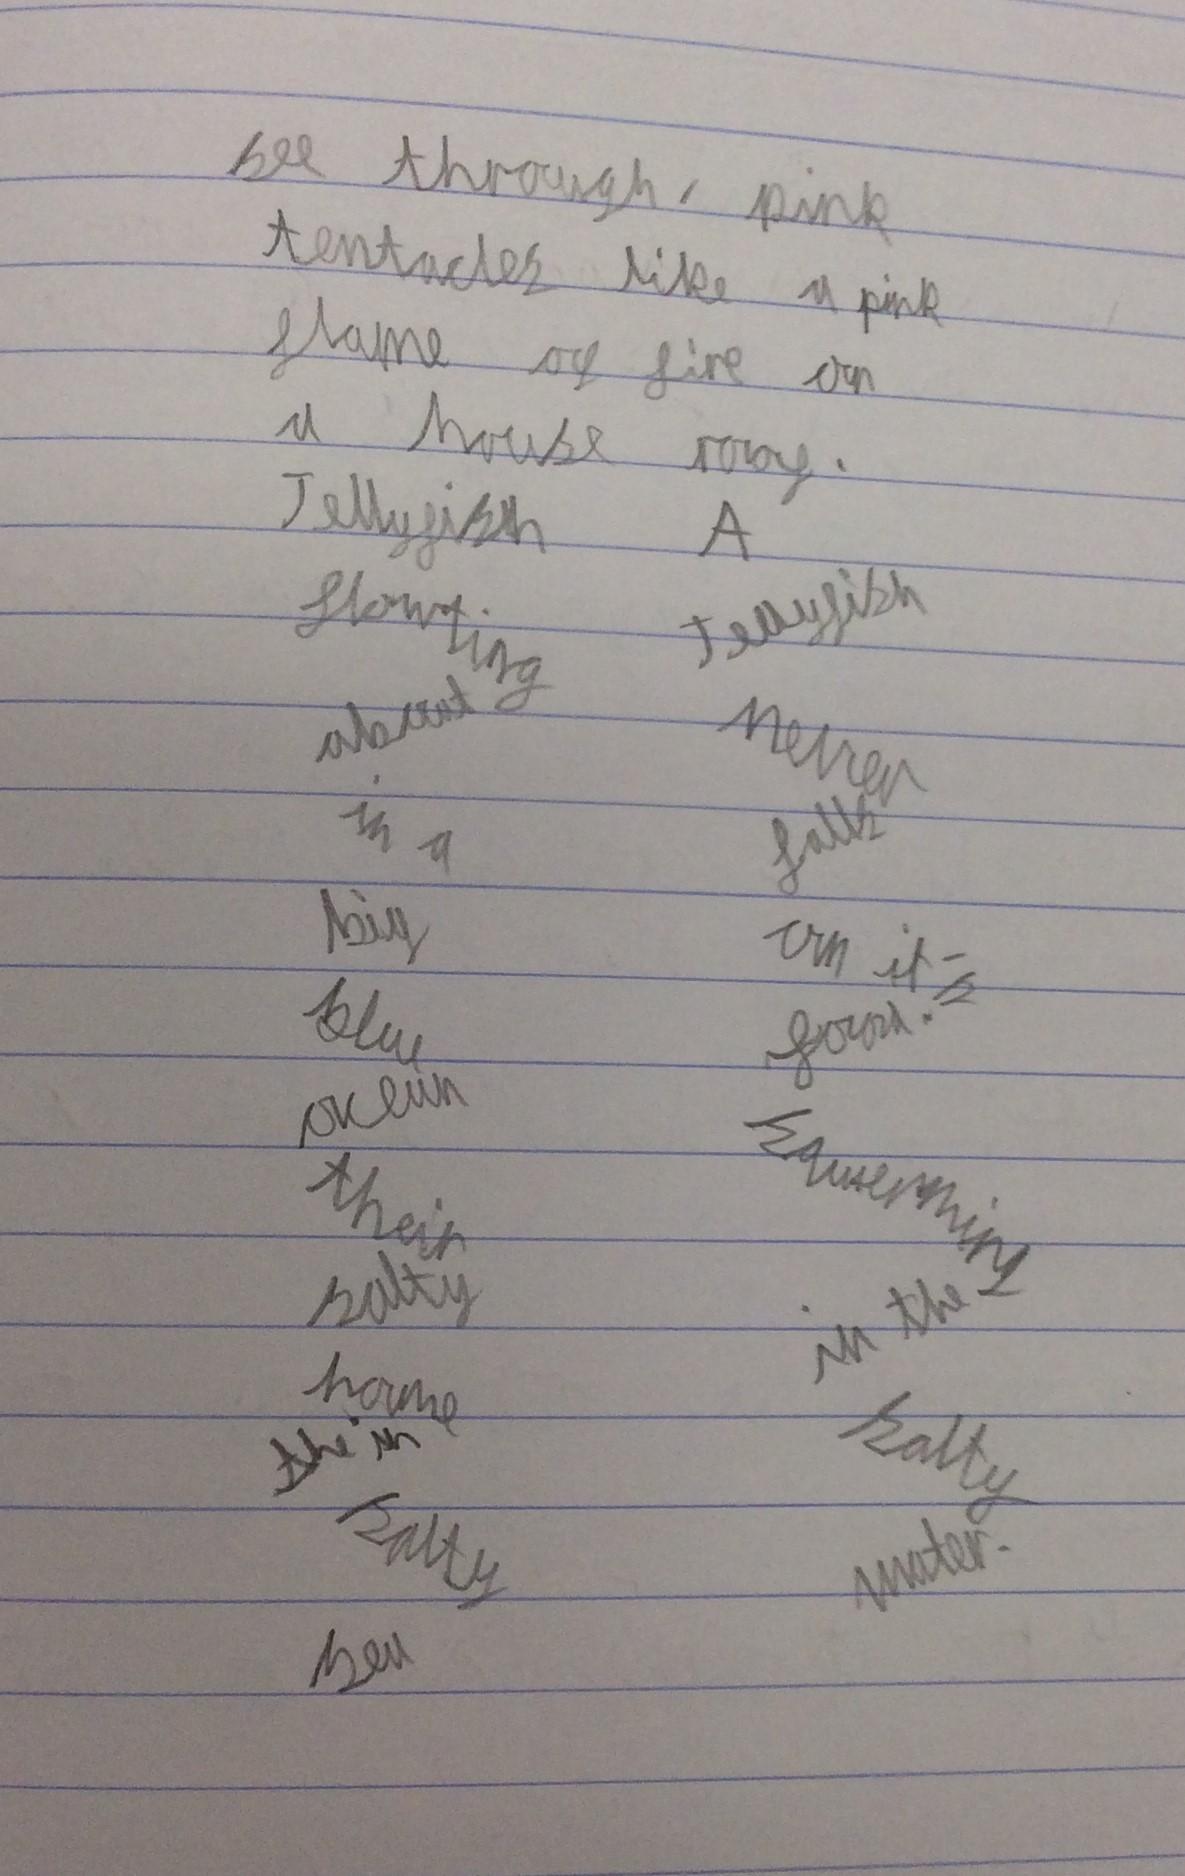 see through, pink
tentacles like a pink
flame of fire on
a house roof.
Jellyfish
flowting
about
in a
big
blue
ocean
their
salty
home
the in
salty
sea
A
Jellyfish
never
falls
on it's
food.
in the
salty
water.